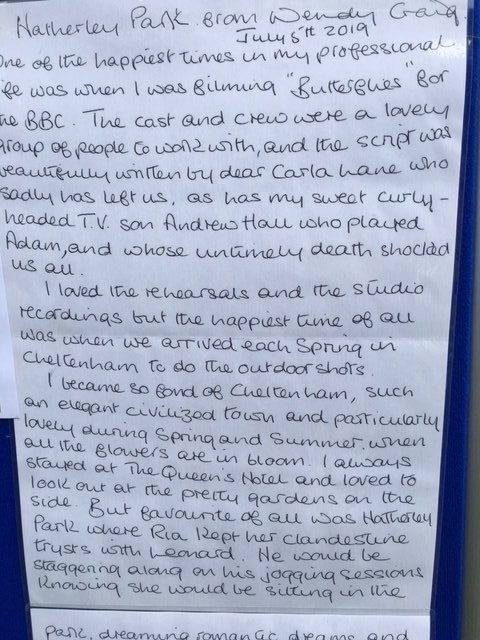 Hatherley Park from Wendy Craig.
July 5th 2019
One of the happiest times in my professional
life was when I was filming "Butterflies" for
the BBC. The cast and crew were a lovely
group of people to work with, and the script was
beautifully written by dear Carla Lane who
sadly has left us, as has my sweet curly-
headed T.V. son Andrew Hall who played
Adam, and whose untimely death shocked
us all.
I loved the rehearsals and the studio
recordings but the happiest time of all
was when we arrived each Spring in
Cheltenham to do the outdoor shots.
I became so fond of Cheltenham, such
an elegant civilized town and particularly
lovely during Spring and Summer when
all the flowers are in bloom. I always
stayed at The Queens Hotel and loved to
look out at the pretty gardens on the
side. But favourite of all was Hatherley
Park where Ria kept her clandestine
trysts with Leonard. He would be
staggering along on his jogging sessions
knowing she would be sitting in the
park, dreaming romantic dreams and